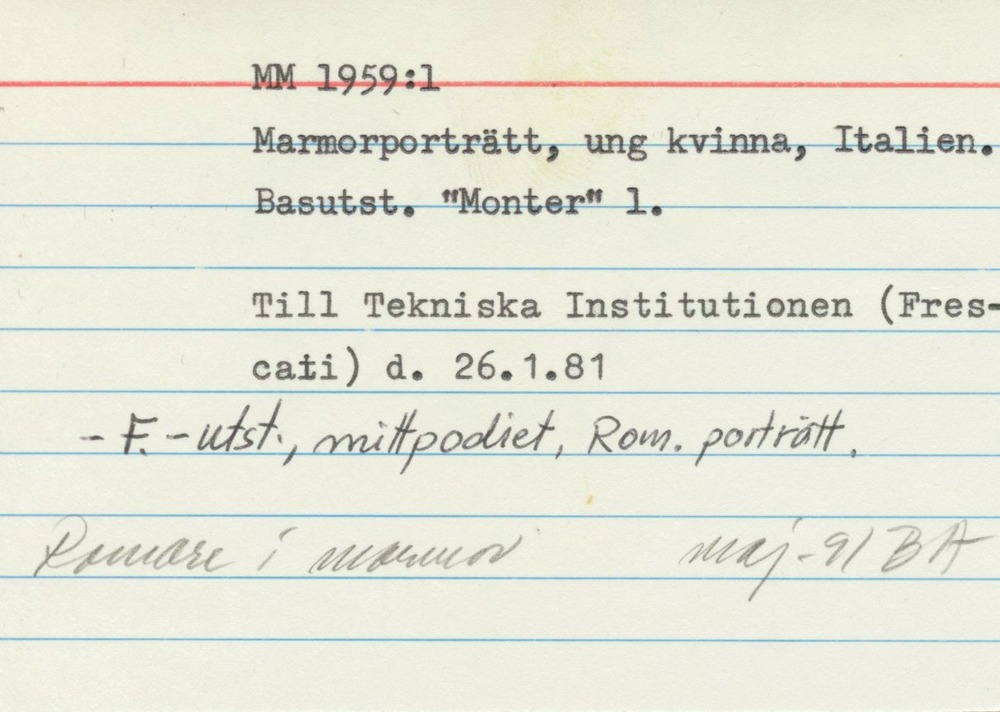 MM 1959:1
Marmorporträtt, ung kvinna, Italien.
Basutst. "Monter" 1.
Till Tekniska Institutionen (Fres-
cati) d. 26.1.81
- F.-utst., mittpodiet, Rom. porträtt.
Romare i marmor maj-91 BA